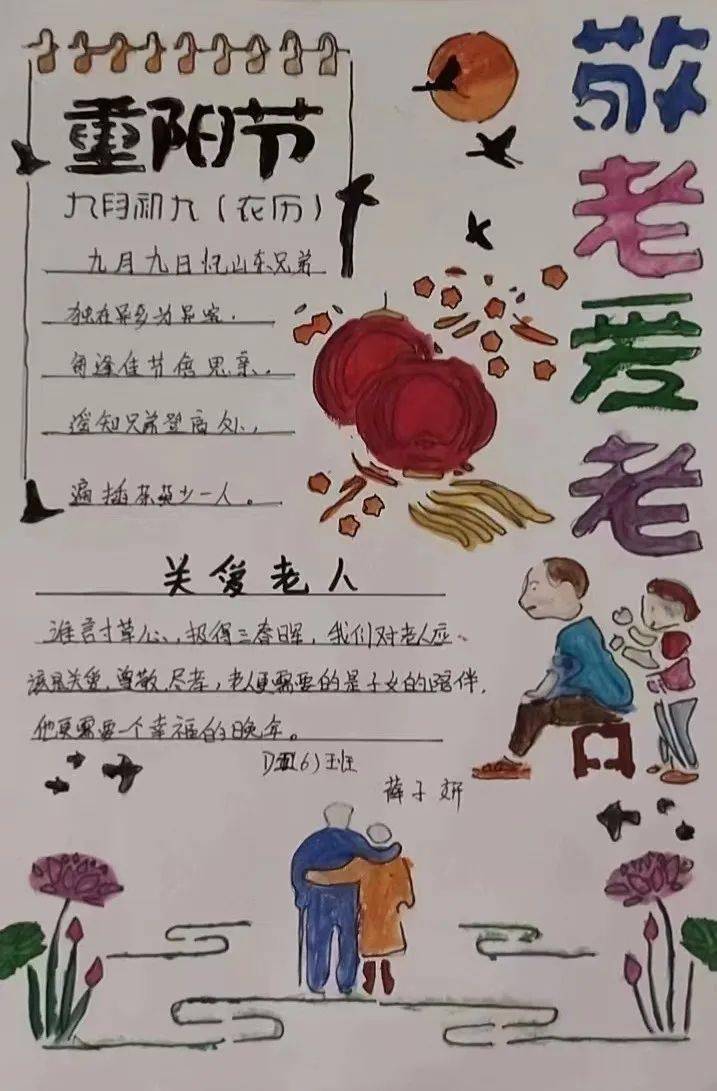 重阳节
九月初九(农历)
九月九日忆山东兄弟
独在异乡为异客.
每逢佳节倍思亲。
遥知兄弟登高处,
遍插茱萸少一人。
敬老爱老
关爱老人
谁言寸草心,报得三春晖,我们对老人应
该是关爱.尊敬.尽孝,老人更需要的是子女的陪伴,
他更需要一个幸福的晚年。
(6)班
薛子妍